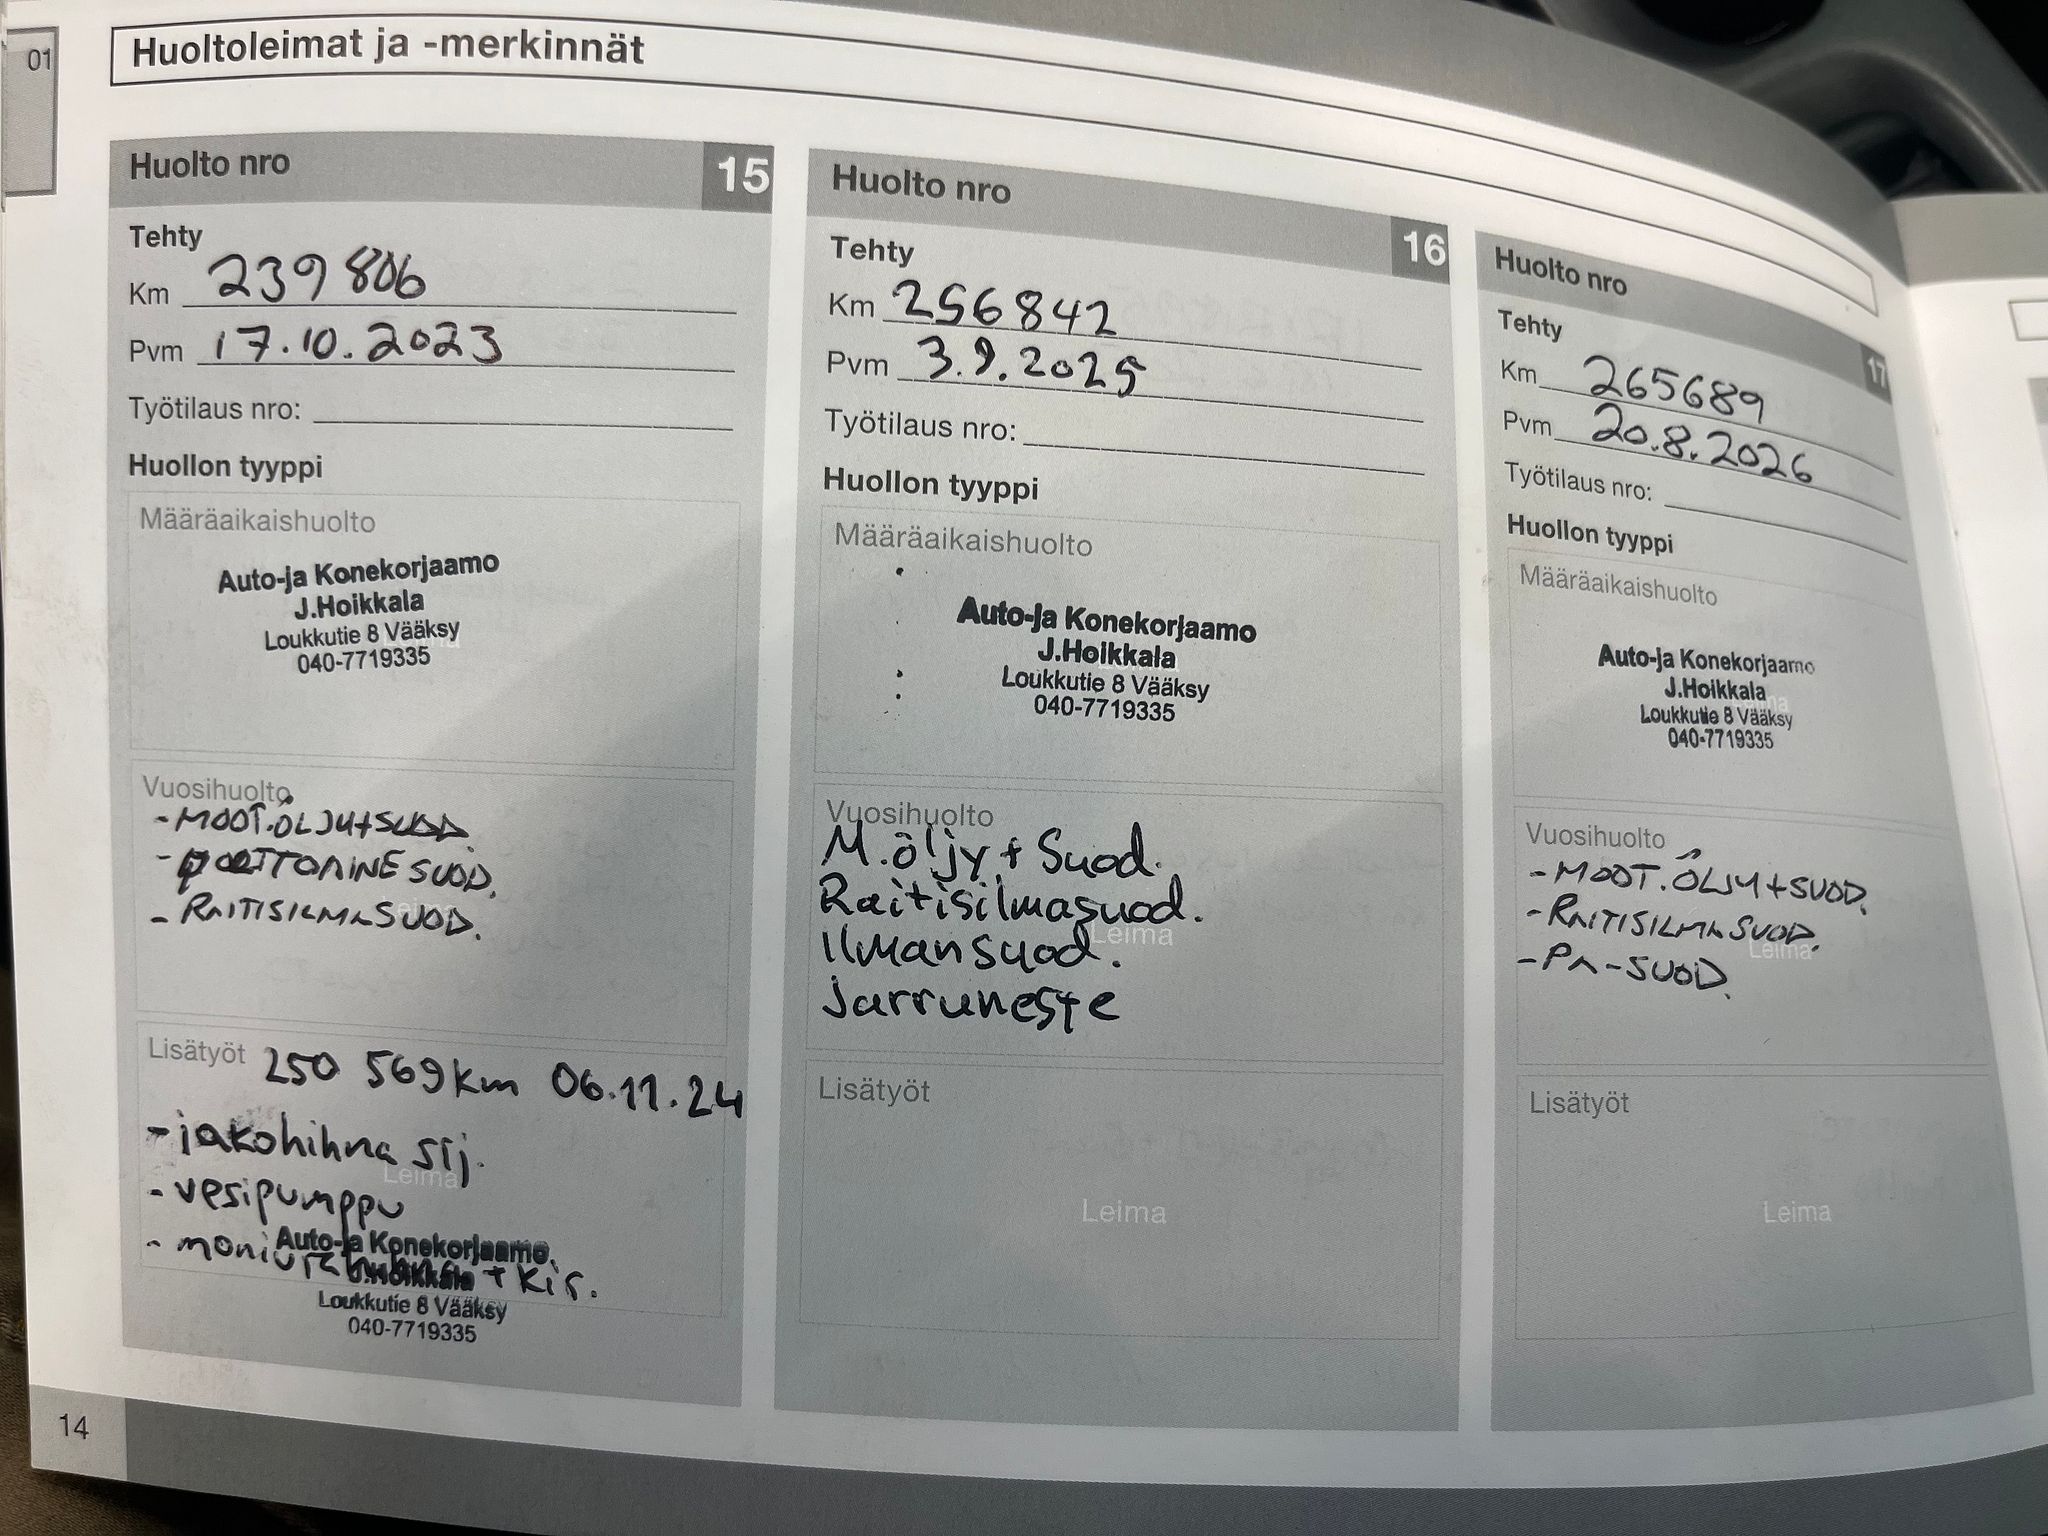 01
Huoltoleimat ja -merkinnät
Huolto nro 15
Tehty
Km 239 806
Pvm 17.10.2023
Työtilaus nro:
Huollon tyyppi
Määräaikaishuolto
Auto-ja Konekorjaamo
J.Hoikkala
Loukkutie 8 Vääksy
040-7719335
Vuosihuolto
- MOOT.ÖLJY+SUOD.
- POLTTOAINE SUOD.
- RAITISILMASUOD.
Leima
Lisätyöt 250 569km 06.11.24
- jakohihna srj.
Leima
- vesipumppu
- moniurahihna + kir.
Auto-ja Konekorjaamo
J.Hoikkala
Loukkutie 8 Vääksy
040-7719335
Huolto nro 16
Tehty
Km 256842
Pvm 3.9.2025
Työtilaus nro:
Huollon tyyppi
Määräaikaishuolto
Auto-ja Konekorjaamo
J.Hoikkala
Loukkutie 8 Vääksy
040-7719335
Vuosihuolto
M.öljy + Suod.
Raitisilmasuod.
Leima
Ilmansuod.
Jarruneste
Lisätyöt
Leima
Huolto nro 17
Tehty
Km 265689
Pvm 20.8.2026
Työtilaus nro:
Huollon tyyppi
Määräaikaishuolto
Auto-ja Konekorjaamo
J.Hoikkala
Leima
Loukkutie 8 Vääksy
040-7719335
Vuosihuolto
- MOOT.ÖLJY+SUOD.
- RAITISILMASUOD.
Leima
- PA-SUOD.
Lisätyöt
Leima
14